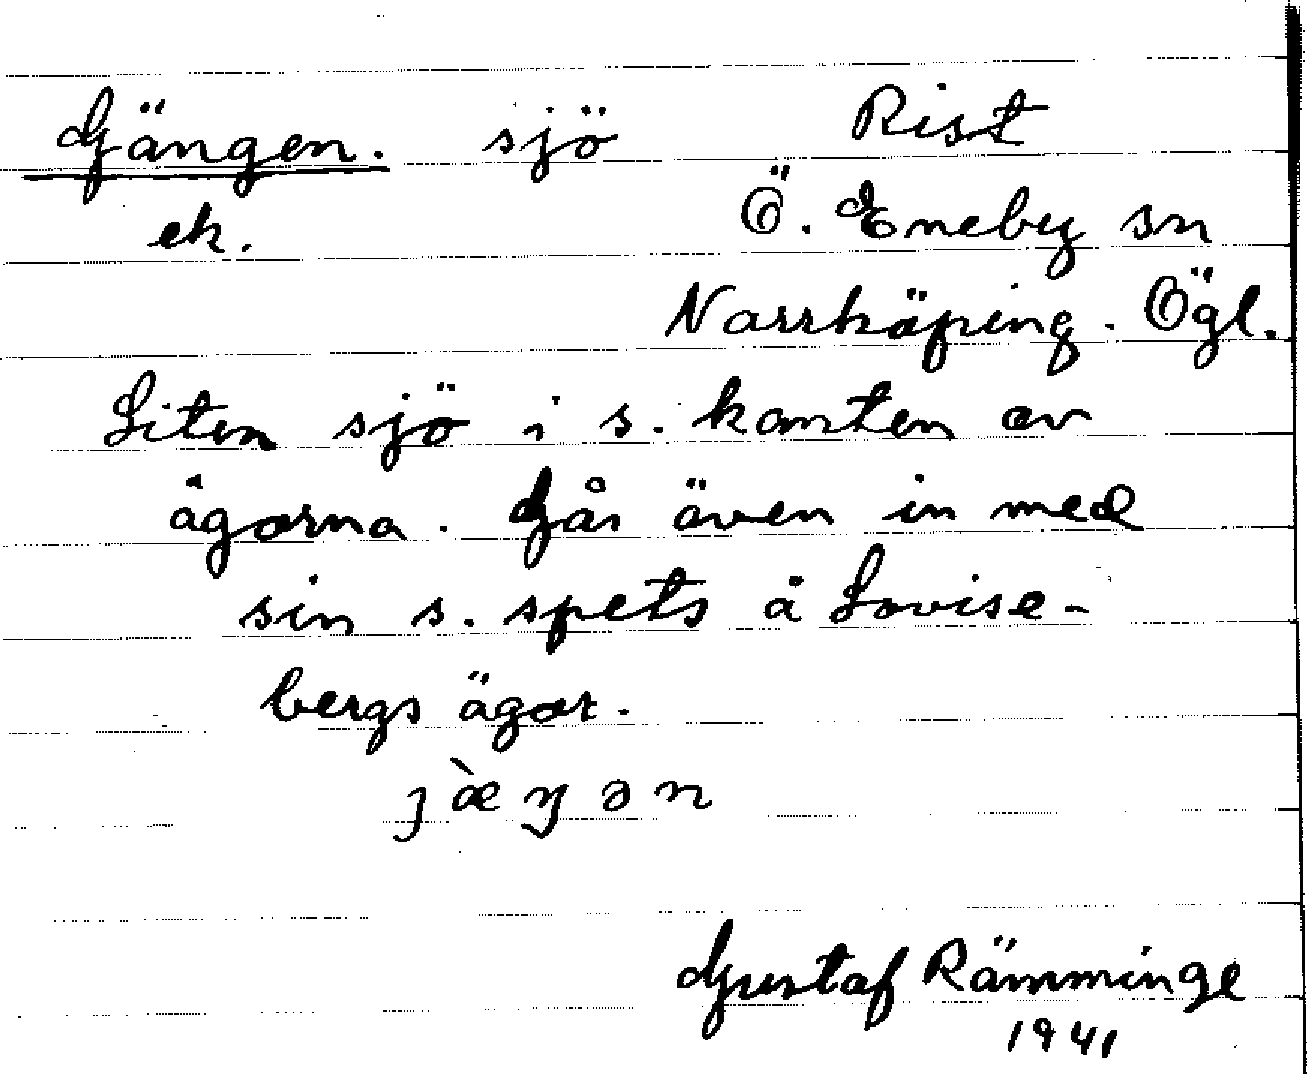 Gängen. sjö Rist
ek. Ö. Eneby sn
Norrköping. Ögl.
Liten sjö i s. kanten av
ägorna. Går även in med
sin s. spets å Lovise-
bergs ägor.
jæ̀ŋən
Gustaf Rämminge
1941